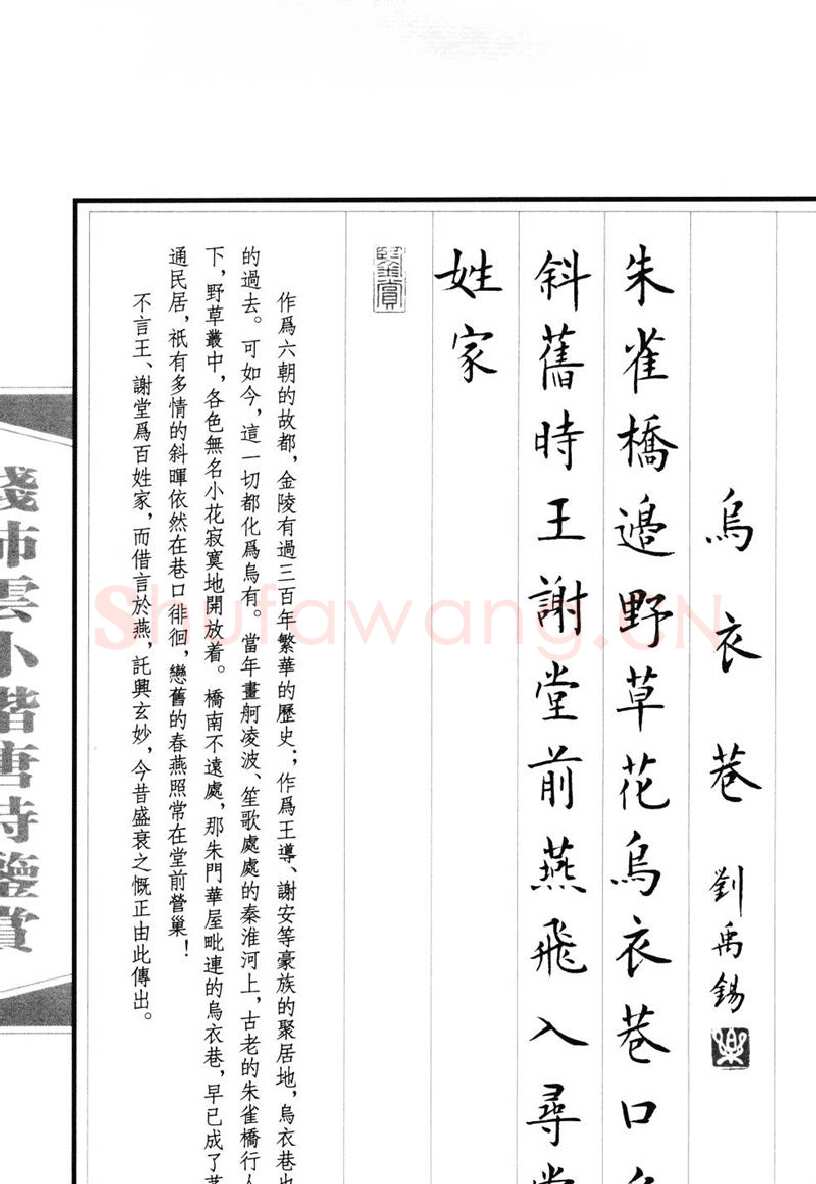 烏衣巷 劉禹錫
朱雀橋邉野草花烏衣巷口
斜舊時王謝堂前燕飛入尋
姓家
鑒賞
作爲六朝的故都，金陵有過三百年繁華的歷史；作爲王導、謝安等豪族的聚居地，烏衣巷也
的過去。可如今，這一切都化爲烏有。當年畫舸凌波、笙歌處處的秦淮河上，古老的朱雀橋行人
下，野草叢中，各色無名小花寂寞地開放着。橋南不遠處，那朱門華屋毗連的烏衣巷，早已成了
通民居，祇有多情的斜暉依然在巷口徘徊，戀舊的春燕照常在堂前營巢！
不言王、謝堂爲百姓家，而借言於燕，託興玄妙，今昔盛衰之慨正由此傳出。
錢沛雲小楷唐詩鑒賞
Shufawang.CN